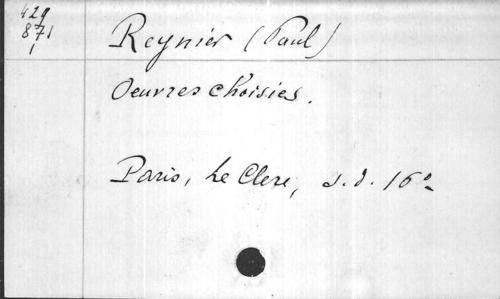 429
871
1
Reynier (Paul)
Oeuvres choisies.
Paris, Le Clere, s.d. 16°